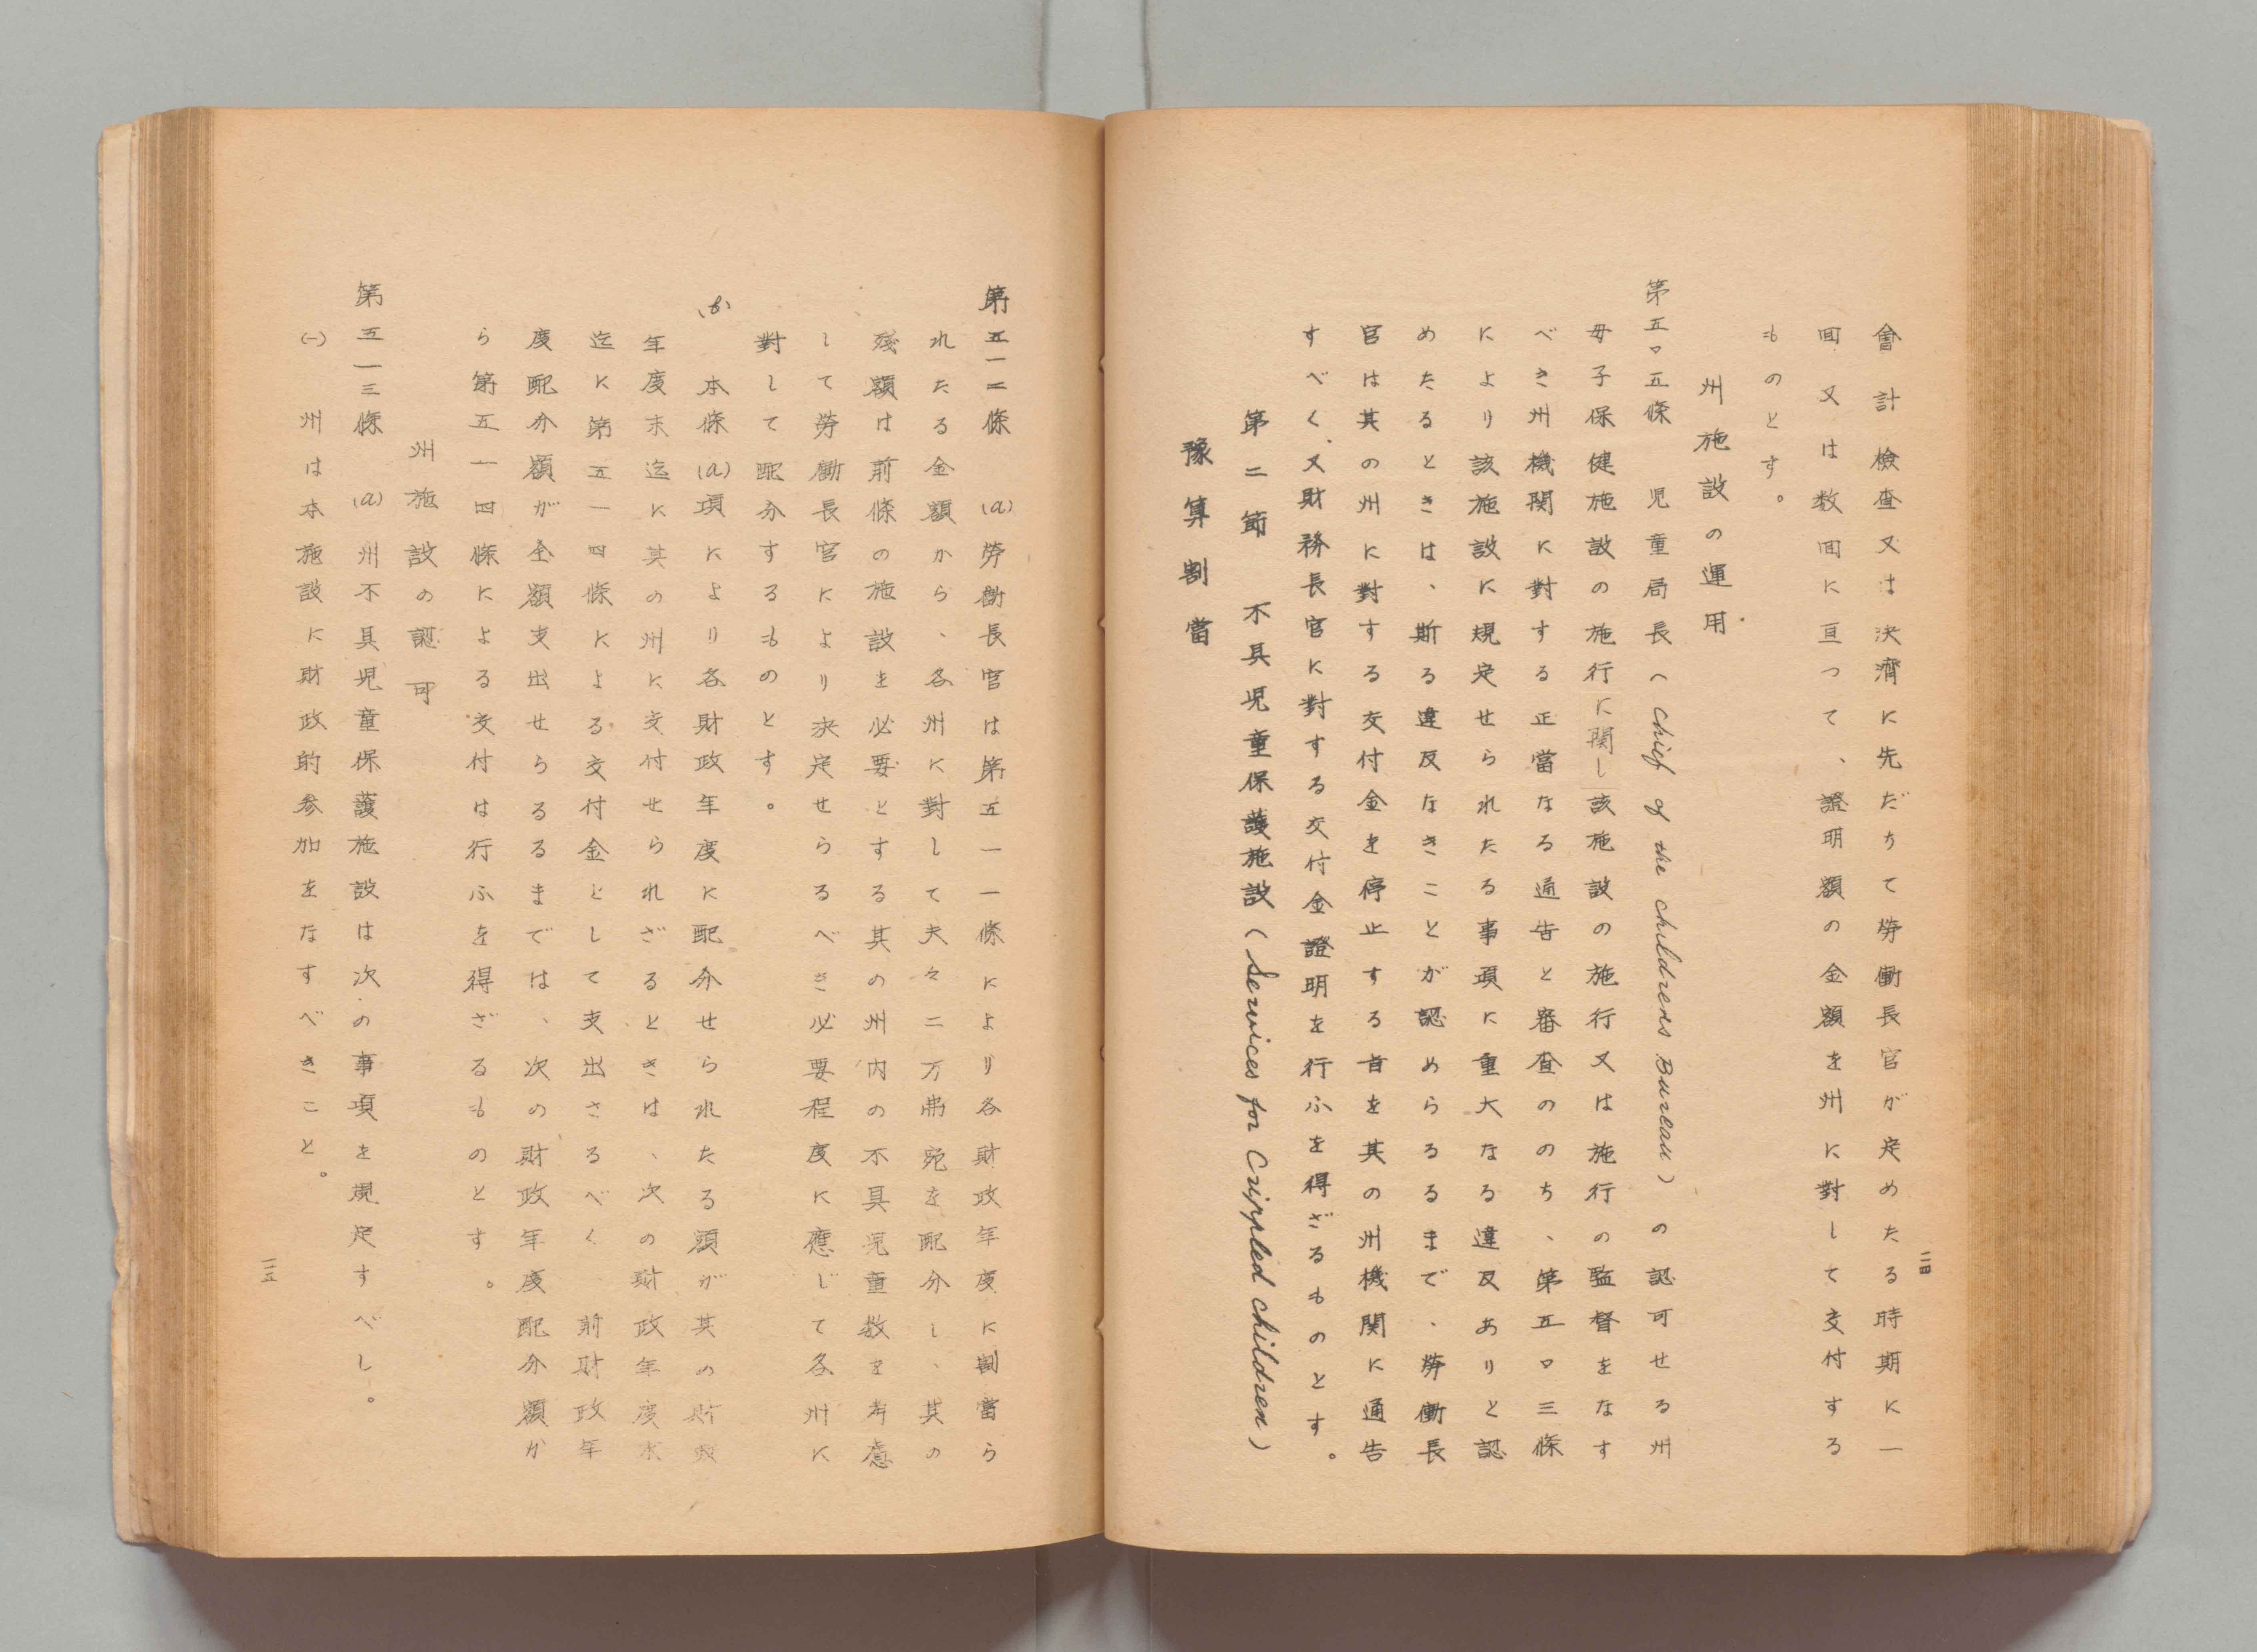 二四
會計檢査又は決濟に先だちて勞働長官が定めたる時期に一
回又は数回に亘つて、證明額の金額を州に對して交付する
ものとす。
州施設の運用
第五〇五條　児童局長（Chief of the childrens Bureau）の認可せる州
母子保健施設の施行に関し該施設の施行又は施行の監督をなす
べき州機関に對する正當なる通告と審査ののち、第五〇三條
により該施設に規定せられたる事項に重大なる違反ありと認
めたるときは、斯る違反なきことが認めらるるまで、勞働長
官は其の州に對する交付金を停止する旨を其の州機関に通告
すべく、又財務長官に對する交付金證明を行ふを得ざるものとす。
第二節　不具児童保護施設（Services for Crippled children）
豫算割當
第五一二條　(a)　勞働長官は第五一一條により各財政年度に割當ら
れたる金額から、各州に對して夫々二万弗宛を配分し、其の
殘額は前條の施設を必要とする其の州内の不具児童数を考慮
して勞働長官により決定せらるべき必要程度に應じて各州に
對して配分するものとす。
(b)　本條(a)項により各財政年度に配分せられたる額が其の財政
年度末迄に其の州に交付せられざるときは、次の財政年度末
迄に第五一四條による交付金として支出さるべく　前財政年
度配分額が全額支出せらるるまでは、次の財政年度配分額か
ら第五一四條による交付は行ふを得ざるものとす。
州施設の認可
第五一三條　(a)　州不具児童保護施設は次の事項を規定すべし。
(一)　州は本施設に財政的参加をなすべきこと。
二五